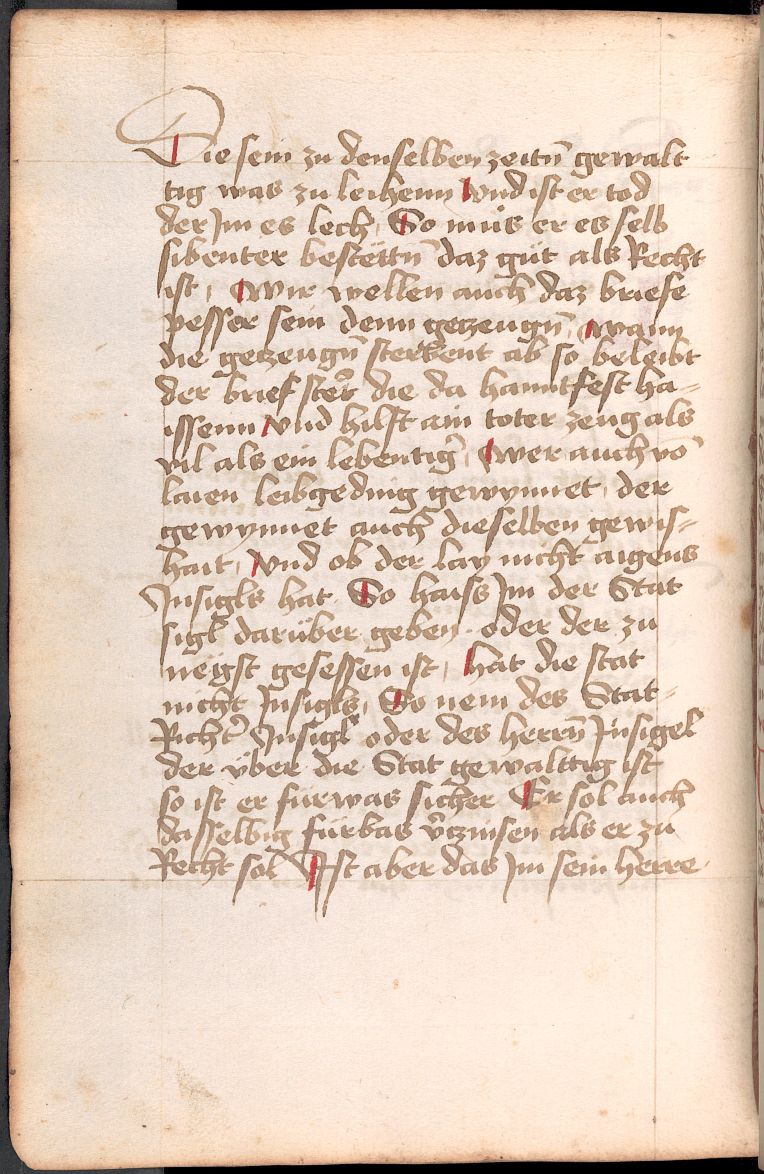 Die sein zu denselben zeitn̄ gewalt
tig was zu leihenn vnd ist er tod
der Jm es lech, So mus er es selb
sibenter bestettn̄ daz gut als Recht
ist, wir wellen auch daz briefe
pesser sein denn getzeugn̄, wann
die getzeugn̄ sterbent ab so beleibt
der brief stet die da hanntfest ha-
issenn vnd hilft ain toter zeug als
vil als ein lebentig̓, wer auch vō
laien leibgeding gewynnet, der
gewynnet auch dieselben gewis-
hait, vnd ob der lay nicht aigens
Jnsigls hat So haiss Jm der Stat
sigl darüber geben. oder der zu
neigst gesessen ist, hat die stat
nicht Jnsigls, So nem des Stat-
Richt̓ Jnsigl oder des herrn̄ Jnsigel
der über die Stat gewalttig ist
so ist er fürwas sicher Er sol auch
dasselbig fürbas v̓tzinsen als er zu
Recht sol Ist aber das Jm sein herre